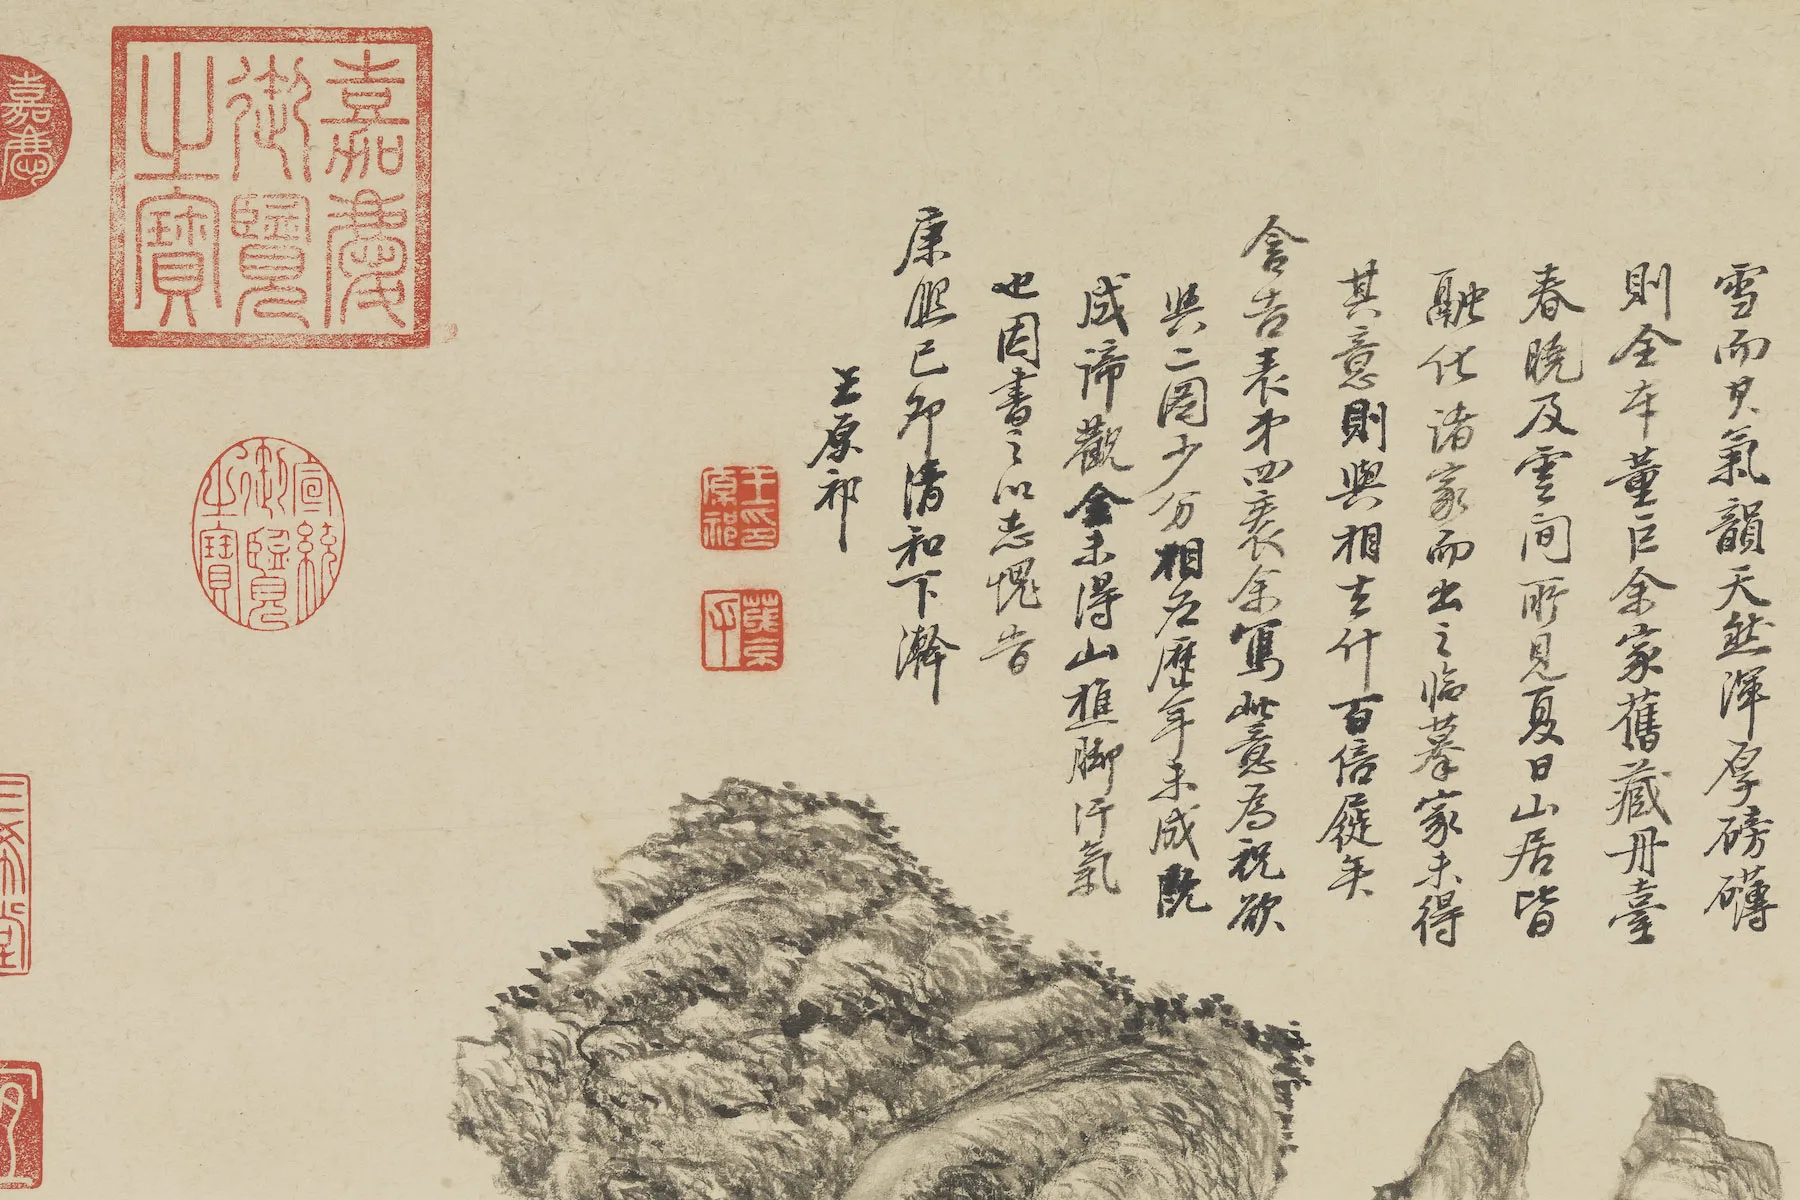 雪而其氣韻天然渾厚磅礴
則全本董巨余家舊藏丹臺
春曉及雲間所見夏日山居皆
融化諸家而出之臨摹家未得
其意則與相去什百倍蓰矣
含吉表弟四袠余寫此意為祝欲
與二圖少分相應歷年未成既
成諦觀全未得山樵腳汗氣
也因書之以志愧旹
康熙己卯清和下澣
王原祁
王印
原祁
茂京
嘉慶
御覽
之寶
宣統
御覽
之寶
嘉慶
三希堂